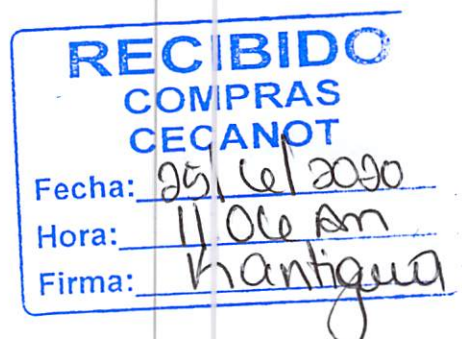 RECIBIDO
COMPRAS
CECANOT
Fecha: 25/6/2020
Hora: 11:06 Am
Firma: Kantigua